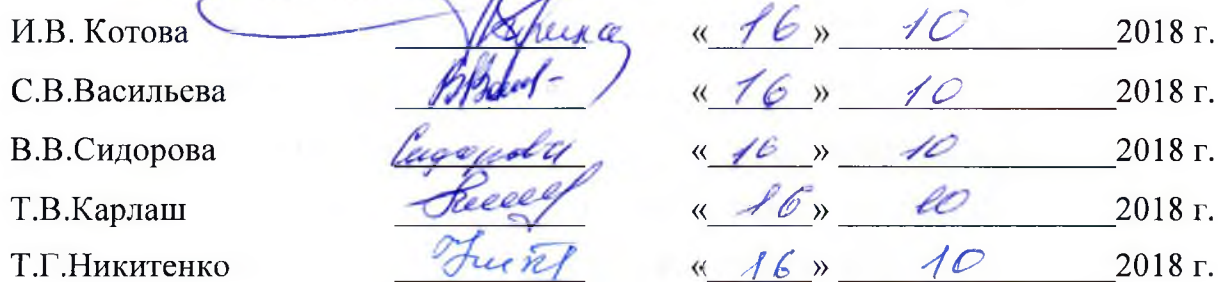 И.В. Котова «16» 10 2018 г.
С.В.Васильева «16» 10 2018 г.
В.В.Сидорова Сидорова «16» 10 2018 г.
Т.В.Карлаш «16» 10 2018 г.
Т.Г.Никитенко «16» 10 2018 г.